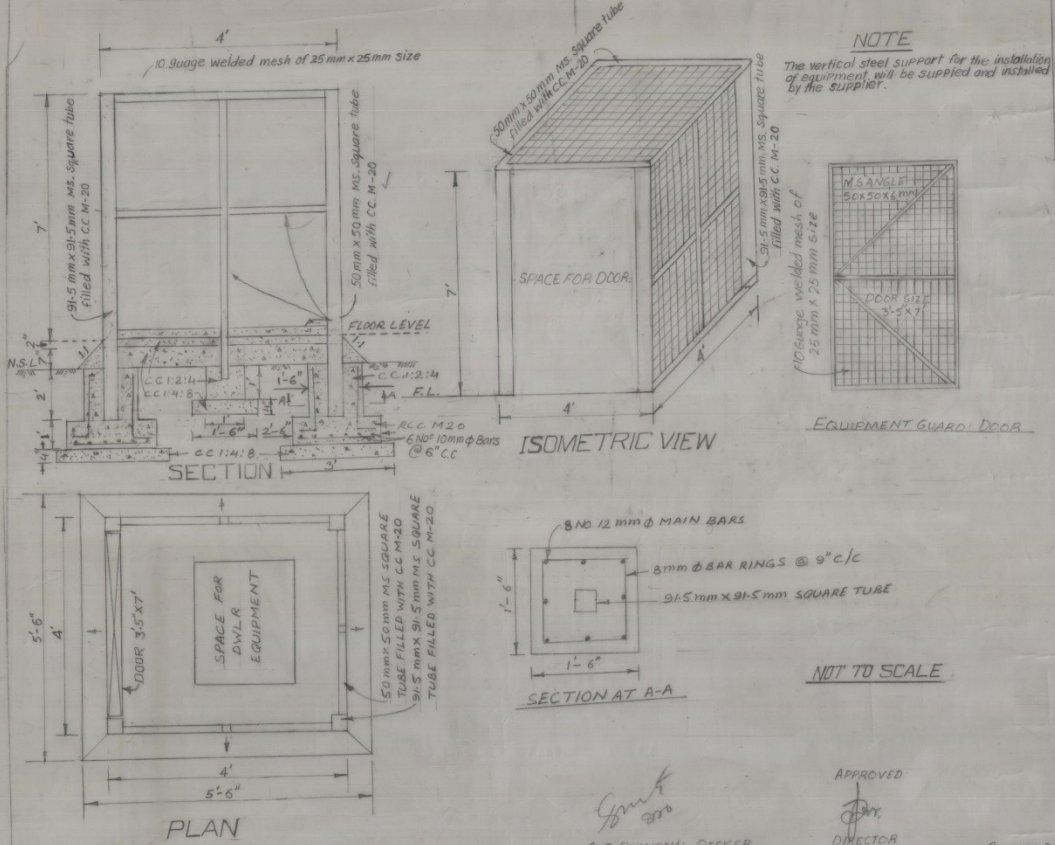 4'
10 guage welded mesh of 25mm x 25mm size
7'
91.5 mm x 91.5 mm MS. Square tube
filled with CC M-20
50mm x 50 mm MS. Square tube
filled with CC. M-20
FLOOR LEVEL
1:1
1:1
2"
7"
N.S.L
2'
1'
4"
CC 1:2:4
CC 1:4:8
1'
4"
1'-6"
A
A
CC 1:2:4
F.L.
1'
1'-6"
2'-6"
RCC M20
6 No: 10mm φ Bars
@ 6" C.C
CC 1:4:8
3'
SECTION
50mm x 50 mm MS. Square tube
filled with CC M-20
91.5 mm x 91.5 mm MS. Square tube
filled with CC. M-20
SPACE FOR DOOR
7'
4'
4'
ISOMETRIC VIEW
NOTE
The vertical steel support for the installation
of equipment will be supplied and installed
by the supplier.
M.S ANGLE
50x50x6mm
10 Guage welded mesh of
25 mm x 25 mm size
DOOR SIZE
3'-5"x7'
EQUIPMENT GUARD DOOR
5'-6"
4'
DOOR 3'.5"x7'
SPACE FOR
DWLR
EQUIPMENT
50 mm x 50mm MS SQUARE
TUBE FILLED WITH CC M-20
91.5 mm x 91.5 mm MS SQUARE
TUBE FILLED WITH CC M-20.
4'
5'-6"
PLAN
8 NO 12 mm φ MAIN BARS
8mm φ BAR RINGS @ 9" C/C
91.5mm x 91.5 mm SQUARE TUBE
1'-6"
1'-6"
SECTION AT A-A
NOT TO SCALE
APPROVED
DIRECTOR
OFFICER